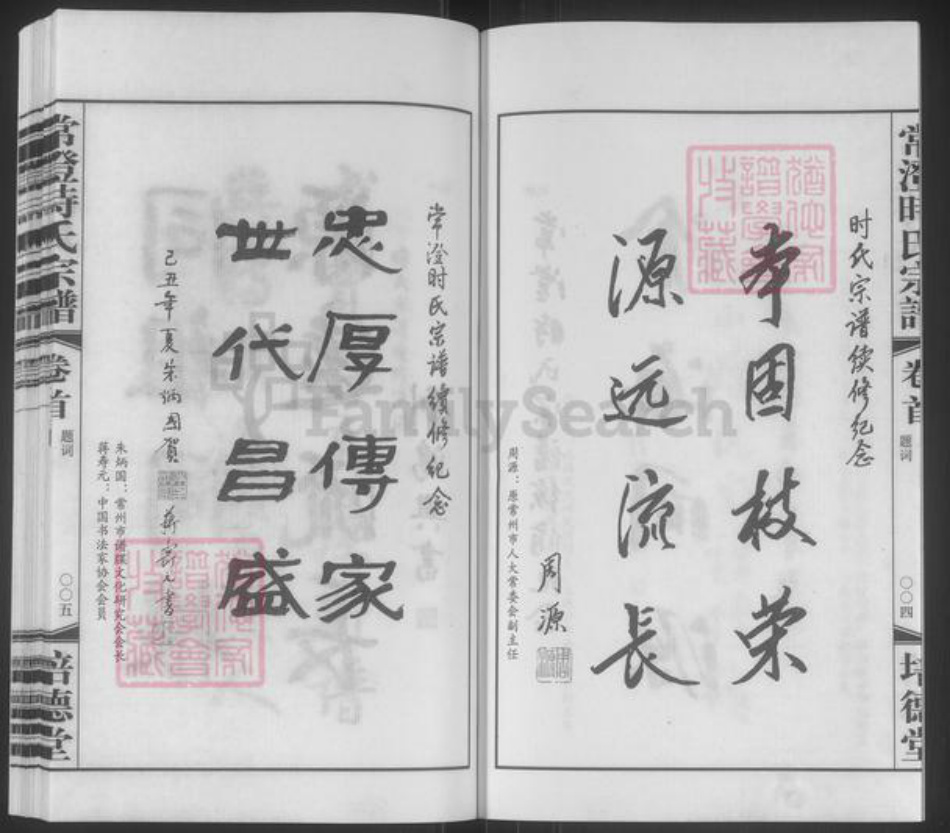 常澄时氏宗谱
卷首
题词
〇〇四
培德堂
时氏宗谱续修纪念
本固枝荣
源远流长
周源
周源：原常州市人大常委会副主任
常澄时氏宗譜續修纪念
忠厚傳家
世代昌盛
己丑年夏朱炳国賀
蒋寿元書
朱炳国：常州市谱牒文化研究会会长
蒋寿元：中国书法家协会会员
常澄時氏宗譜
卷首
题词
〇〇五
培德堂
FamilySearch